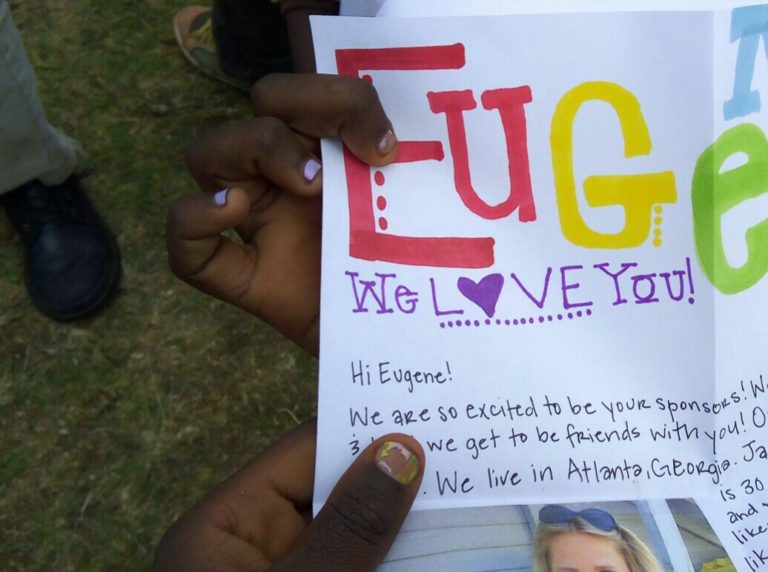 EUGeN
We LOVE YOU!
Hi Eugene!
We are so excited to be your sponsors! We
3 we get to be friends with you! O
. We live in Atlanta, Georgia. Ja
is 30
and
like
lik